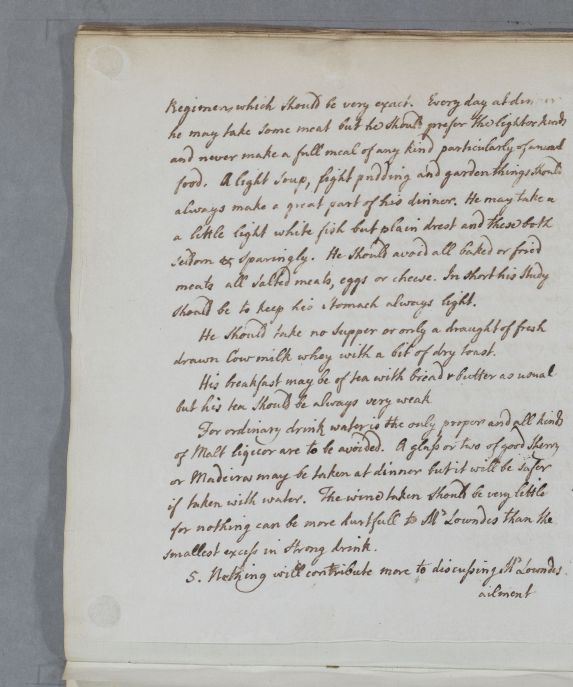 Regimen, which should be very exact. Every day at dinner
he may take some meat but he should prefer the lighter kinds
and never make a full meal of any kind particularly of animal
food. A light soup, light pudding and garden things should
always make a great part of his dinner. He may take a
a little light white fish but plain drest and these both
seldom & sparingly. He should avoid all baked or fried
meats all salted meats, eggs or cheese. In short his study
should be to keep his stomach always light.
He should take no supper or only a draught of fresh
drawn Cow milk whey with a bit of dry toast.
His breakfast may be of tea with bread & butter as usual
but his tea should be always very weak
For ordinary drink water is the only proper and all kinds
of Malt liquor are to be avoided. A glass or two of good Sherry
or Madeira may be taken at dinner but it will be safer
if taken with water. The wine taken should be very little
for nothing can be more hurtfull to Mr Lowndes than the
smallest excess in strong drink.
5. Nothing will contribute more to discussing Mr Lowndes.
ailment